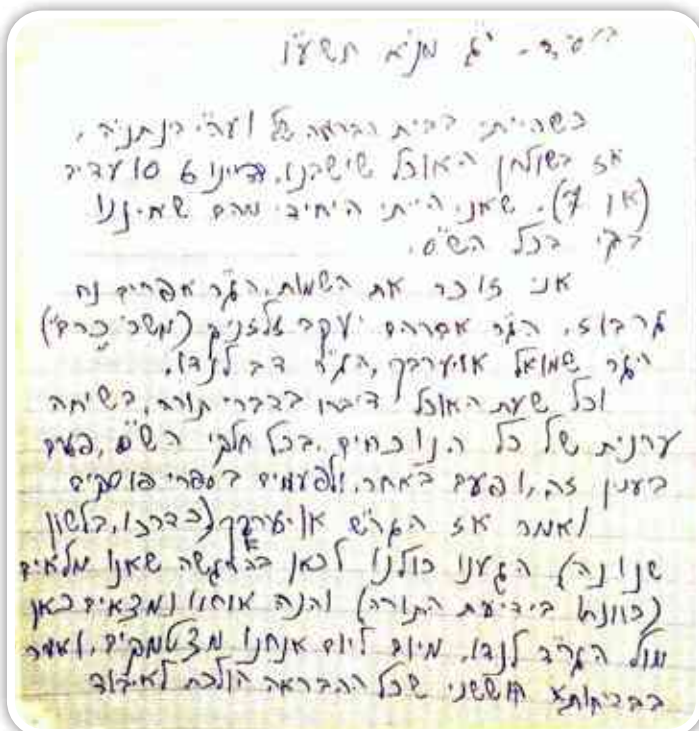 בס״ד. י״ג מנ״א תשע״ו
כשהייתי בבית הבראה של ועה״י בנתניה,
אז בשולחן האוכל שישבנו, היינו 6 סועדים
(או 7). שאני הייתי היחידי מהם שאיננו
בקי בכל הש״ס.
אני זוכר את השמות, הגר אפרים נח
גרבוז. הג״ר אברהם יעקב זלזניק (מש״כ כרם)
הג״ר שמואל אויערבך, הג״ר דב לנדו.
וכל שעת האוכל דיברו בדברי תורה, בשיחה
ערנית של כל הנוכחים, בכל חלקי הש״ס, פעם
בענין זה, ופעם באחר, ולפעמים בספרי פוסקים
ואמר אז הגר״ש אויערבך (כדרכו, בלשון
שנונה) הגענו כולנו לכאן בהרגשה שאנו מלאים
(כוונתו בידיעת התורה) והנה אנחנו נמצאים כאן
מול הגר״ד לנדו. מיום ליום אנחנו מצטמקים, ואמר
בבדיחותא חוששני שכל ההבראה הולכת לאיבוד